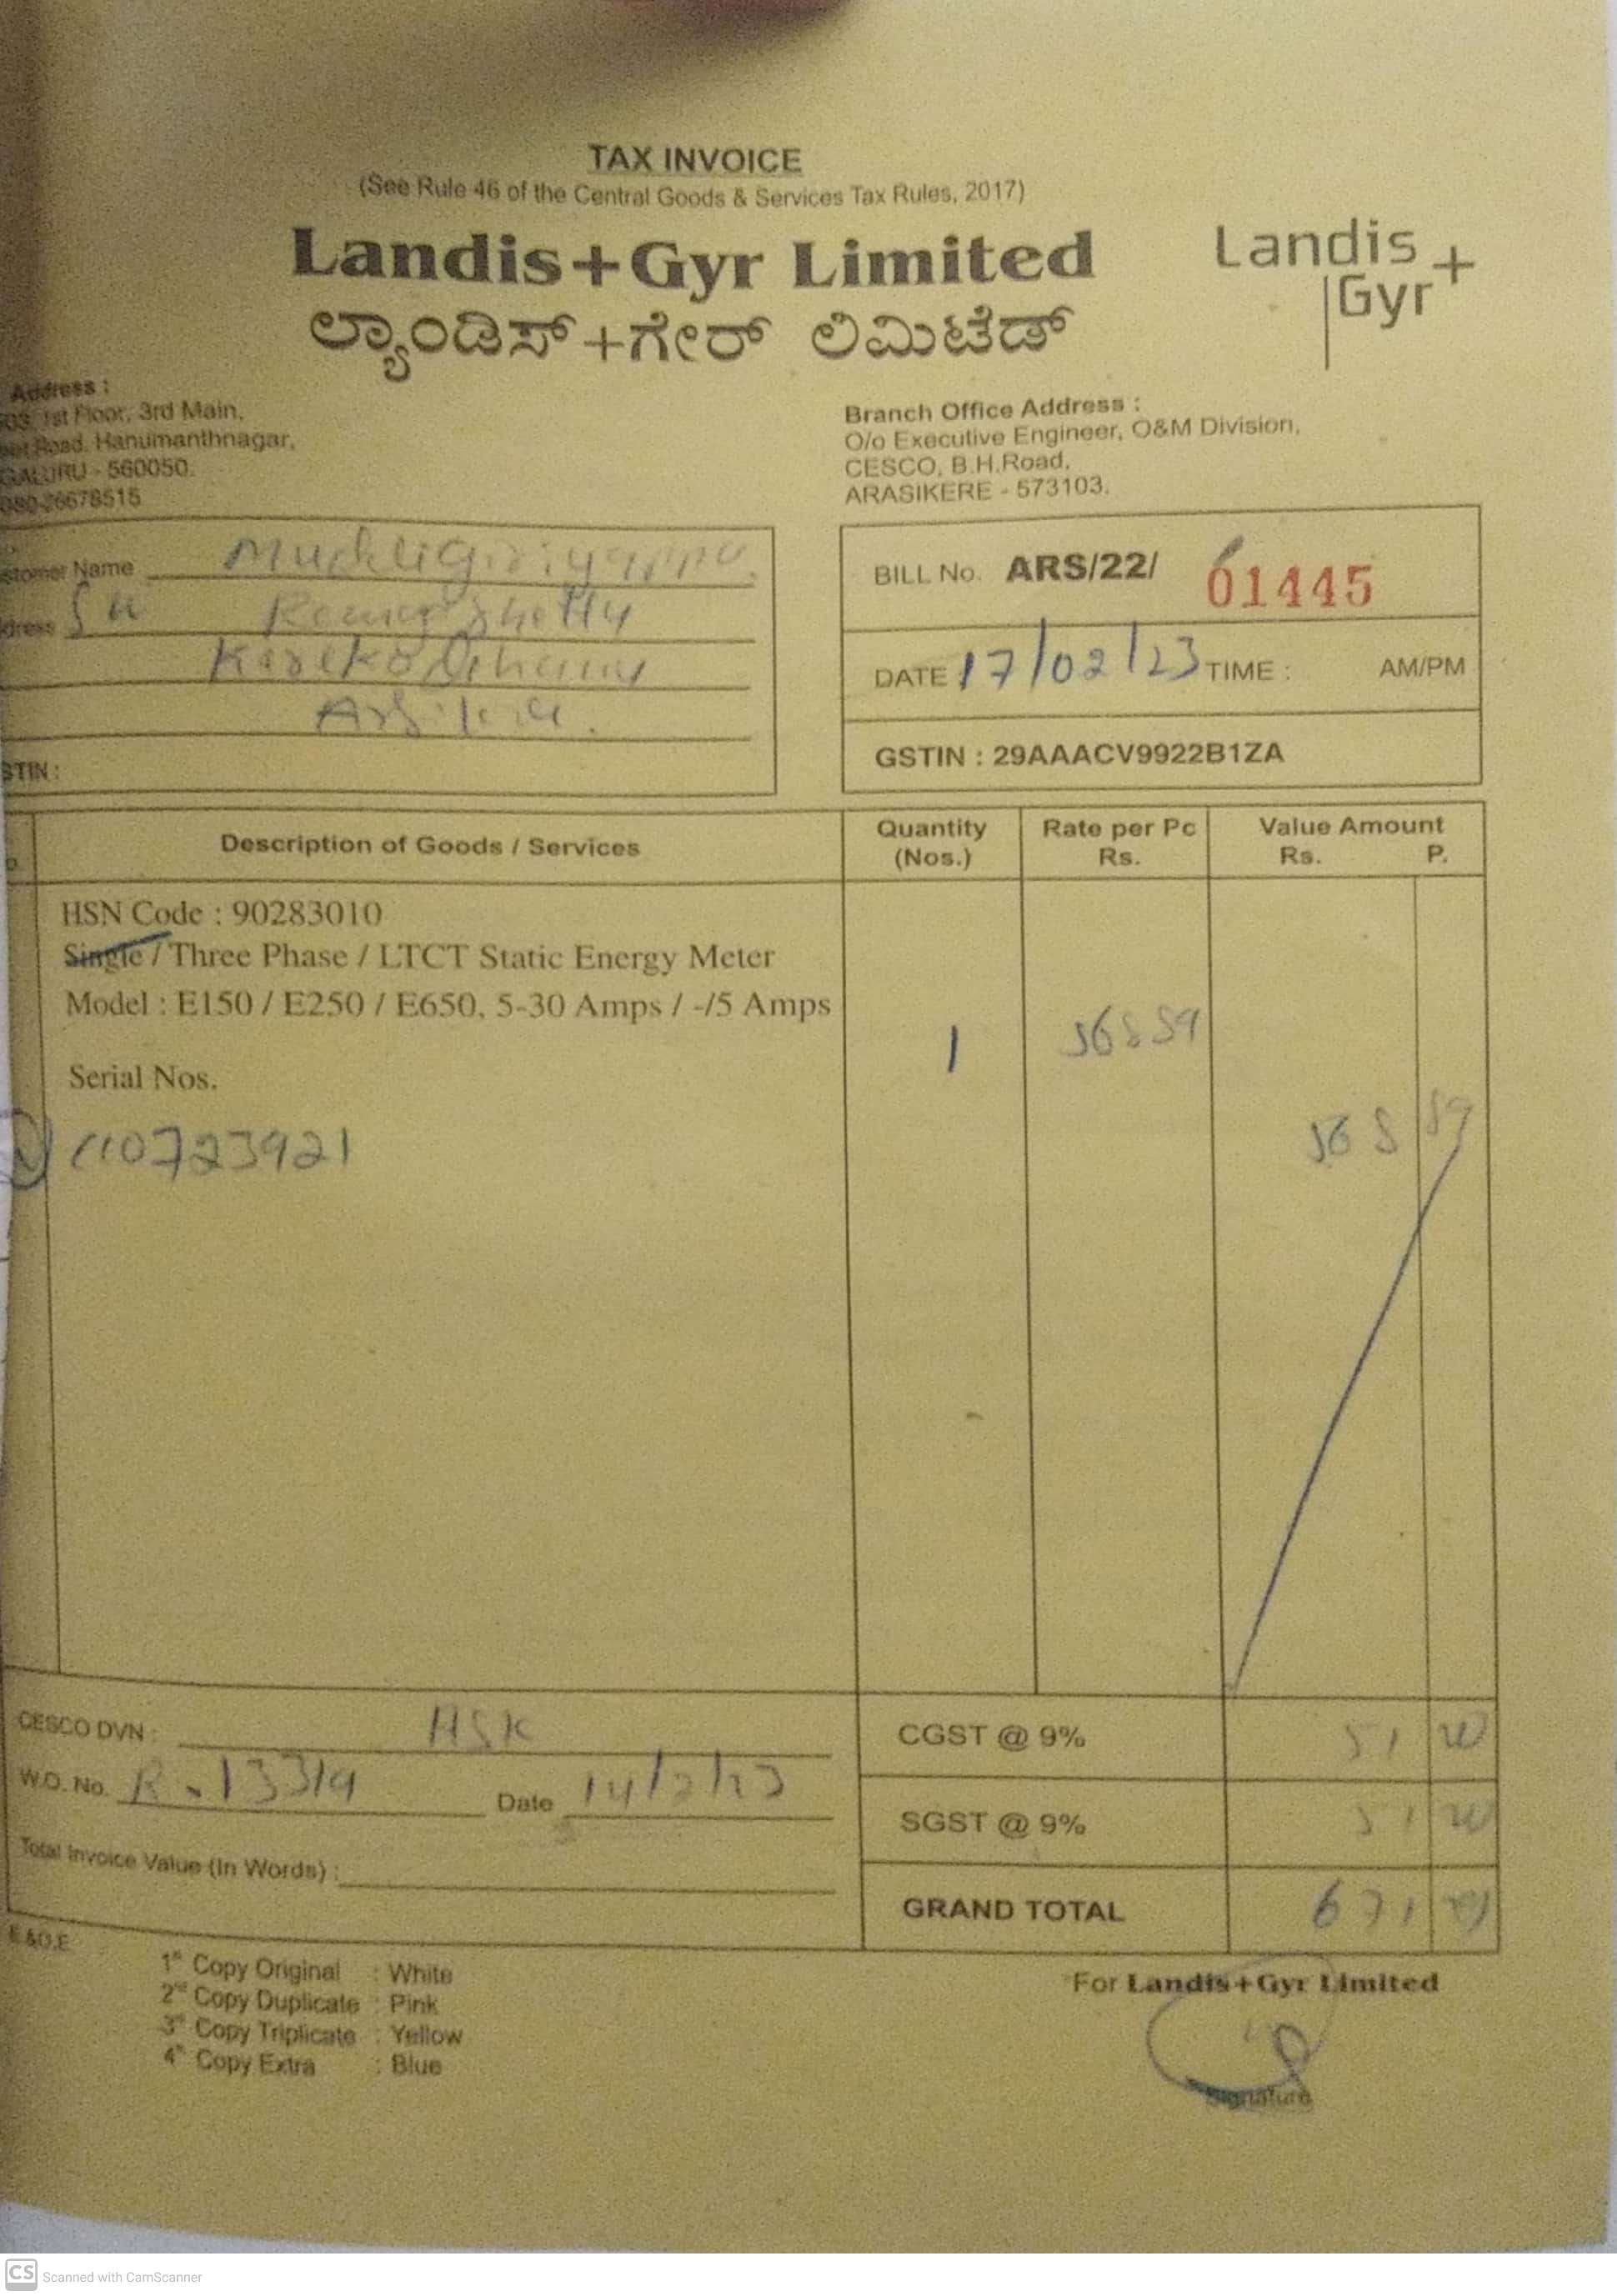 TAX INVOICE
(See Rule 46 of the Central Goods & Services Tax Rules, 2017)
Landis+Gyr Limited
ಲ್ಯಾಂಡಿಸ್+ಗೇರ್ ಲಿಮಿಟೆಡ್
Landis+
Gyr
Address :
1st Floor, 3rd Main,
Road, Hanumanthnagar,
GALURU - 560050.
080-26678515
Branch Office Address :
O/o Executive Engineer, O&M Division,
CESCO, B.H.Road,
ARASIKERE - 573103.
stomer Name
dress
STIN :
BILL No. ARS/22/ 01445
DATE 17/02/23 TIME : AM/PM
GSTIN : 29AAACV9922B1ZA
Description of Goods / Services
Quantity (Nos.)
Rate per Pc Rs.
Value Amount Rs. P.
HSN Code : 90283010
Single / Three Phase / LTCT Static Energy Meter
Model : E150 / E250 / E650, 5-30 Amps / -/5 Amps
1 568 89
Serial Nos.
568 89
110723921
CESCO DVN : HSK
W.O. No. R. 13319 Date 14/2/23
Total Invoice Value (In Words) :
CGST @ 9% 51 20
SGST @ 9% 51 20
GRAND TOTAL 671
E.&O.E
1st Copy Original : White
2nd Copy Duplicate : Pink
3rd Copy Triplicate : Yellow
4th Copy Extra : Blue
For Landis+Gyr Limited
Signature
CS Scanned with CamScanner